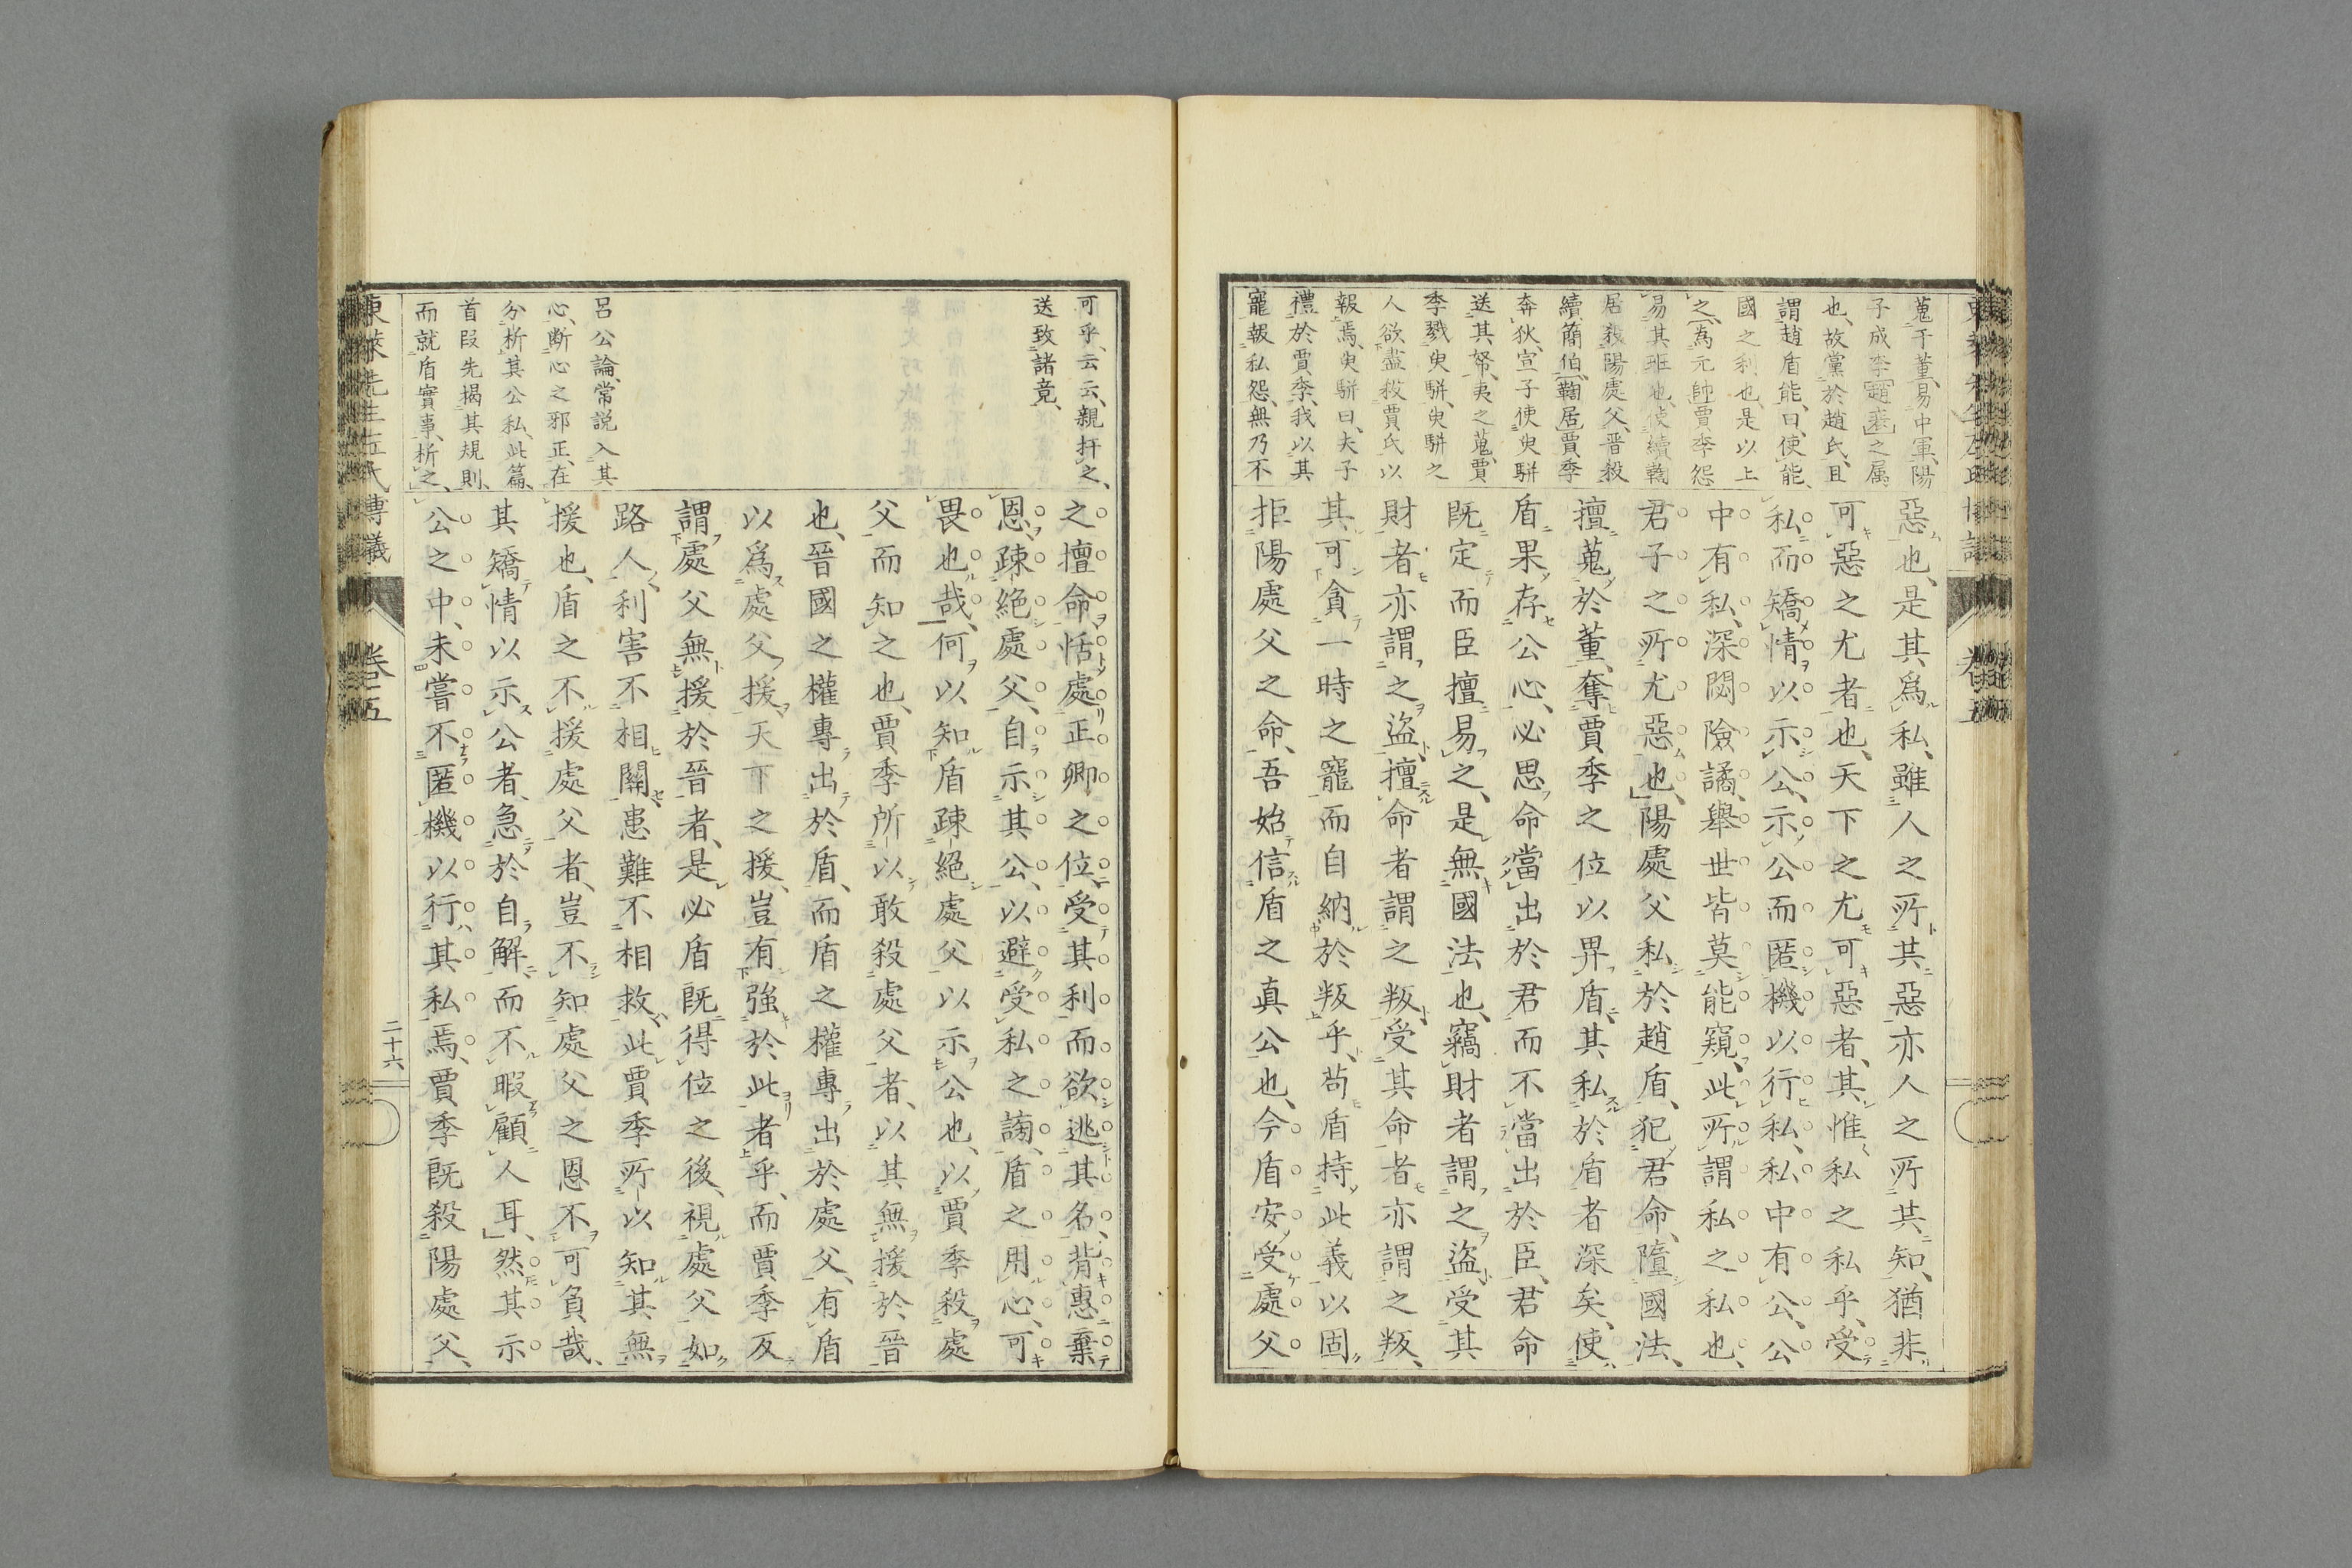 蒐于董、易中軍、陽
子成季、趙衰之属
也、故黨於趙氏、且
謂趙盾能、曰、使能、
國之利也、是以上
之、為元帥、賈季怨
易其班也、使續鞫
居殺陽處父、晋殺
續簡伯、鞫居、賈季
奔狄、宣子使臾駢
送其帑、夷之蒐、賈
季戮臾駢、臾駢之
人欲盡殺賈氏以
報焉、臾駢曰、夫子
禮於賈季、我以其
寵報私怨、無乃不
惡也、是其爲私、雖人之所其惡亦人之所其知、猶非
可惡之尤者也、天下之尤可惡者、其惟私之私乎、受
私而矯情以示公、示公而匿機以行私、私中有公、公
中有私、深閟險譎、舉世皆莫能窺、此所謂私之私也、
君子之所尤惡也、陽處父私於趙盾、犯君命、隳國法、
擅蒐於董、奪賈季之位以畀盾、其私於盾者深矣、使
盾果存公心、必思命當出於君而不當出於臣、君命
既定而臣擅易之、是無國法也、竊財者謂之盜、受其
財者亦謂之盜、擅命者謂之叛、受其命者亦謂之叛、
其可貪一時之寵而自納於叛乎、苟盾持此義以固
拒陽處父之命、吾始信盾之真公也、今盾安受處父
可乎、云云、親扞之、
送致諸竟、
呂公論、常説入其
心、断心之邪正、在
分析其公私、此篇、
首段先揭其規則、
而就盾實事、析之、
之擅命、恬處正卿之位、受其利而欲逃其名、背惠棄
恩、疎絕處父、自示其公、以避受私之謗、盾之用心、可
畏也哉、何以知盾疎絕處父以示公也、以賈季殺處
父而知之也、賈季所以敢殺處父者、以其無援於晉
也、晉國之權專出於盾、而盾之權專出於處父、有盾
以爲處父援、天下之援、豈有強於此者乎、而賈季反
謂處父無援於晉者、是必盾既得位之後、視處父如
路人、利害不相關、患難不相救、此賈季所以知其無
援也、盾之不援處父者、豈不知處父之恩不可負哉、
其矯情以示公者、急於自解、而不暇顧人耳、然其示
公之中、未嘗不匿機以行其私焉、賈季既殺陽處父、
東萊先生左氏博議
卷五
二十六